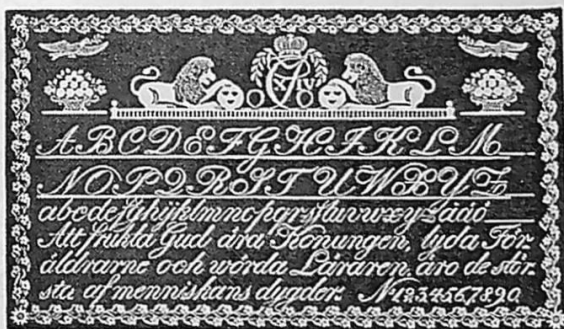 ABCDEFGHIJKLM
NOPQRSTUWXYZ
abcdefghijklmnopqrsſtuvwxyzåäö
Att frukta Gud ära Konungen, lyda För
äldrarne och wörda Läraren, äro de stör
sta af menniskans dygder. N 1.2.3.4.5.6.7.8.9.0.